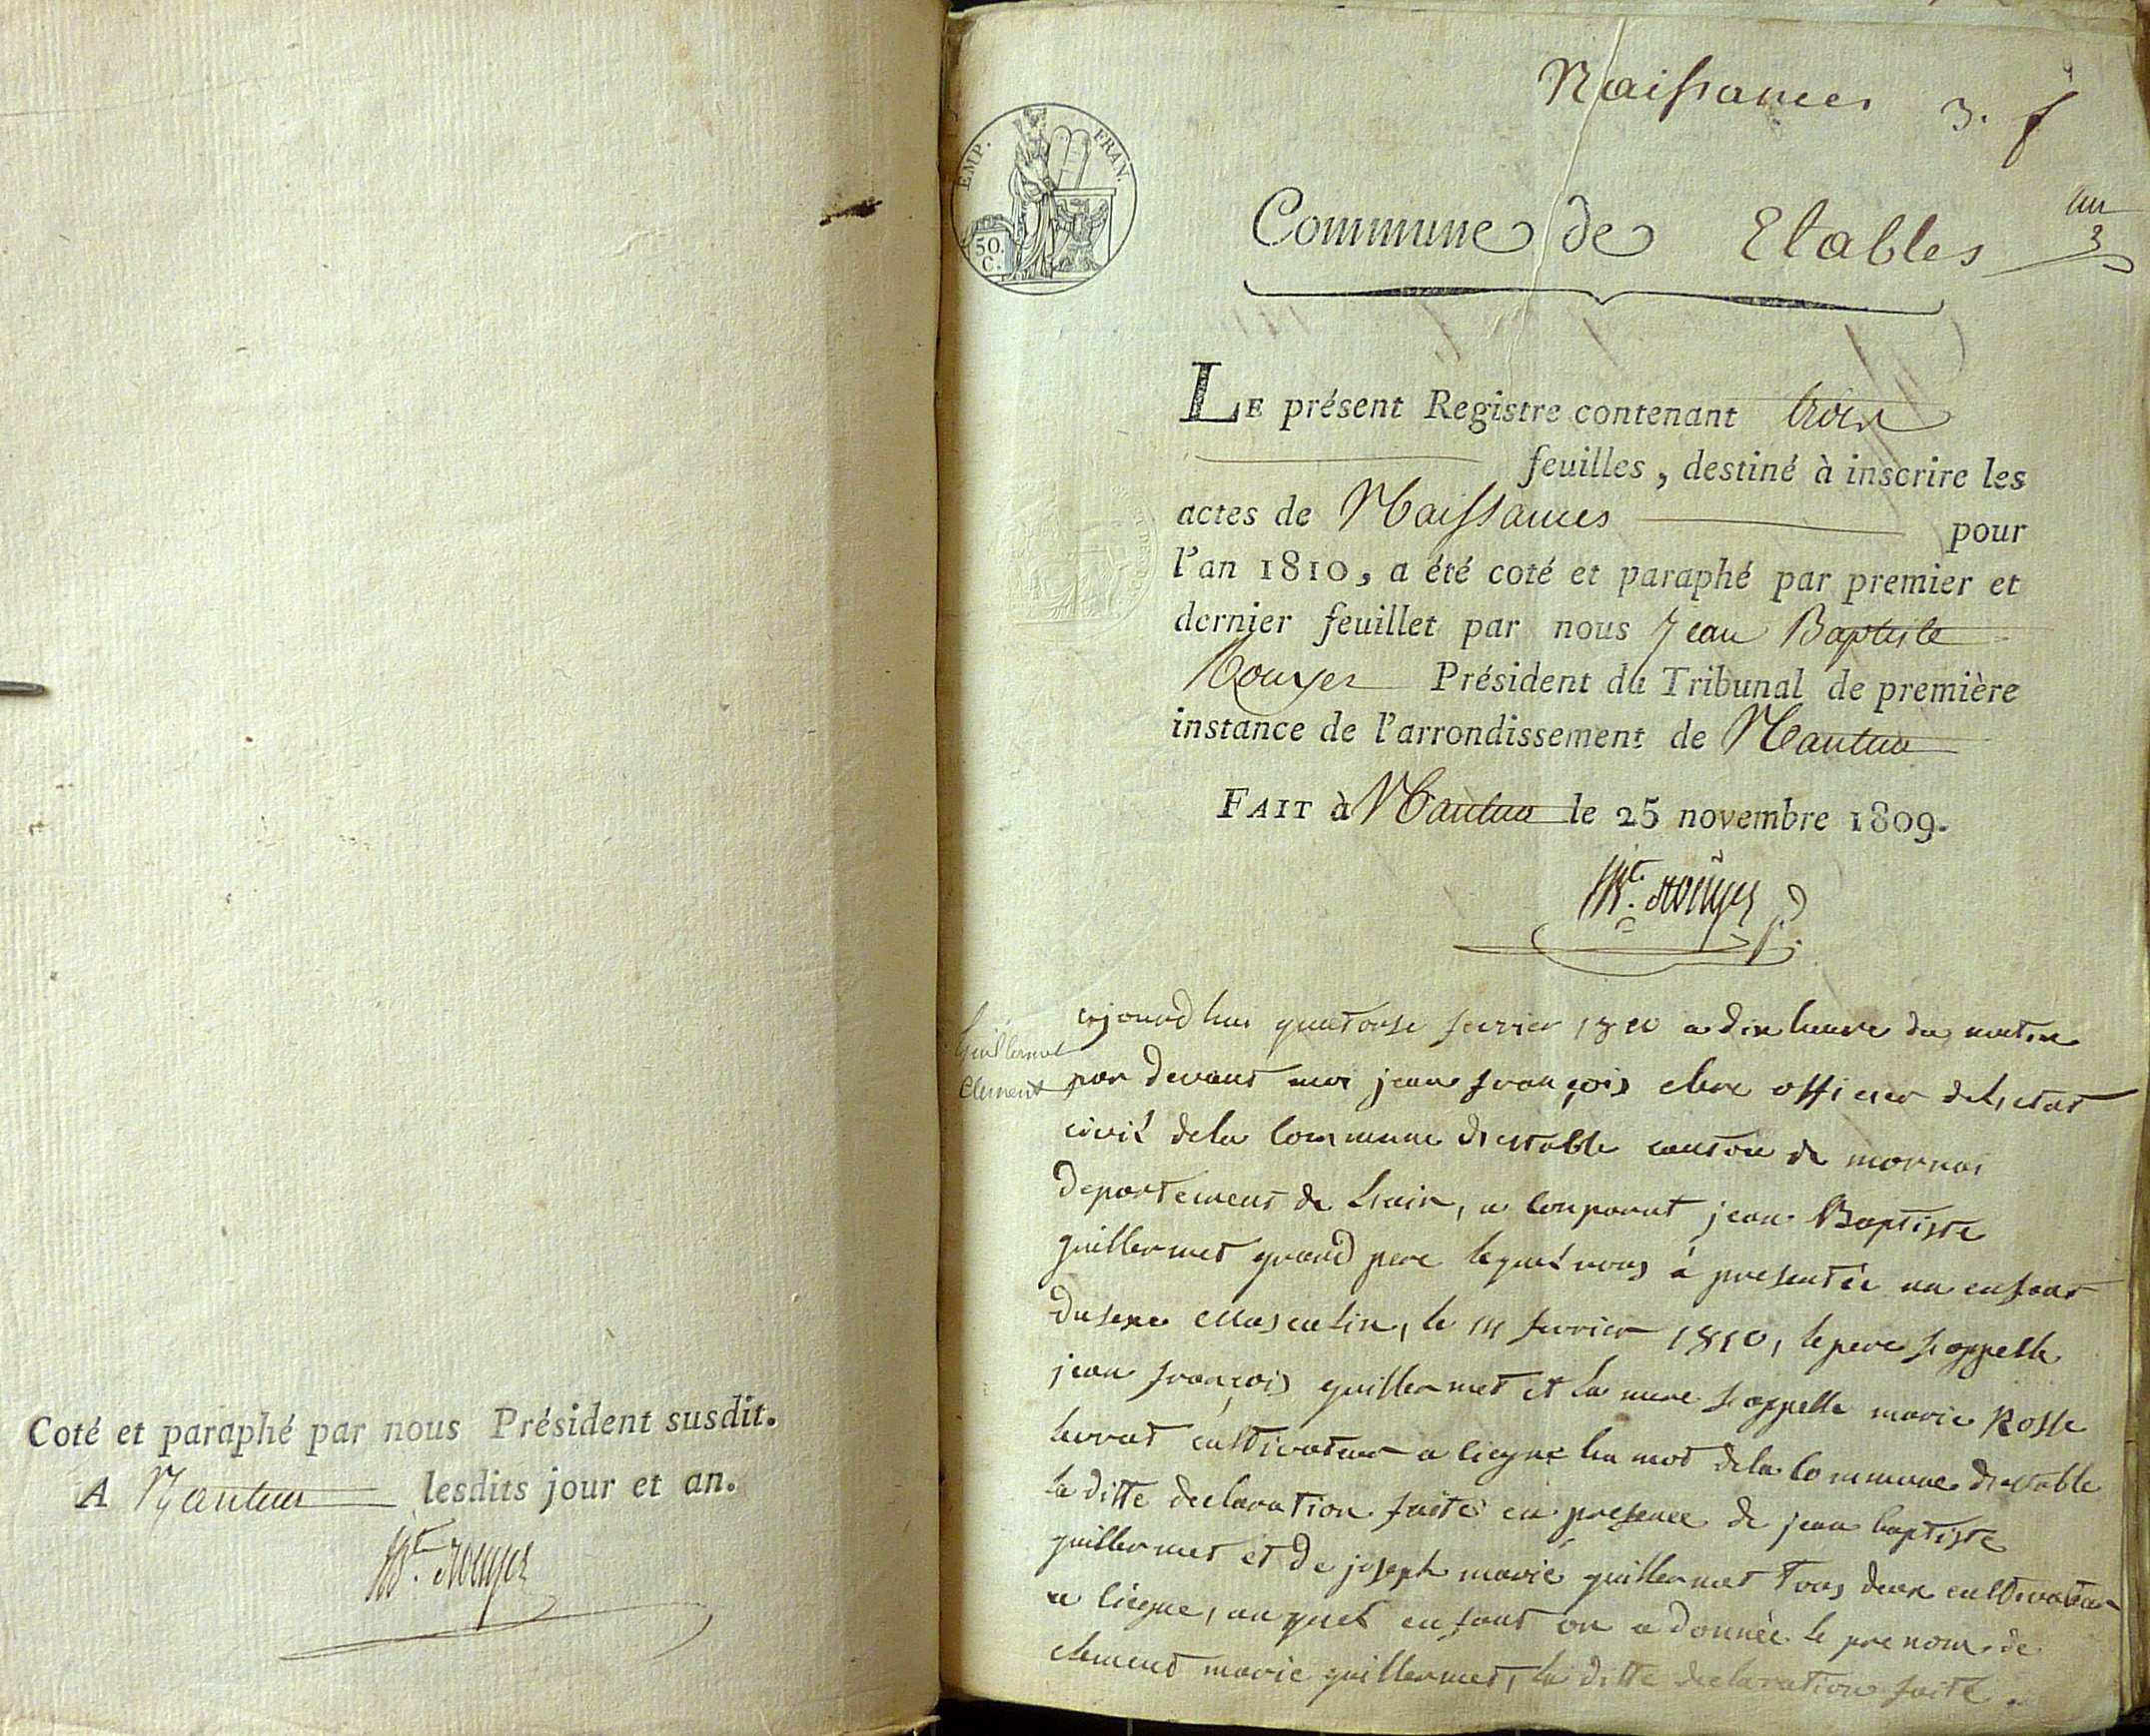 Coté et paraphé par nous Président susdit.
A Nantua lesdits jour et an.
Bte. Rouyer
Naissances 3. f
EMP. FRAN.
50. C.
un
3
Commune de Etables
LE présent Registre contenant trois
feuilles, destiné à inscrire les
actes de Naissances pour
l'an 1810, a été coté et paraphé par premier et
dernier feuillet par nous Jean Baptiste
Rouyer Président du Tribunal de première
instance de l'arrondissement de Nantua
FAIT à Nantua le 25 novembre 1809.
Bte. Rouyer
Guillermet
Clement
aujourdhui quatorse fevrier 1810 a dix heure du matin
par devant moi jean françois officier deletat
civil dela Commune destable canton de
departement de Lain, a comparut jean Baptiste
guillermet grand pere lequel nous à presentée un enfant
dusexe Masculin, le 14 fevrier 1810, lepere sappelle
jean françois guillermet et la mere sappelle marie Rosse
cultivateur a ciegne dela Commune destable
la ditte declaration faite en presence de jean baptiste
guillermet et de joseph marie guillermet tous deux cultivateur
a ciegne, auquel enfant on a donnée le prenom de
clement marie guillermet, la ditte declaration faite.